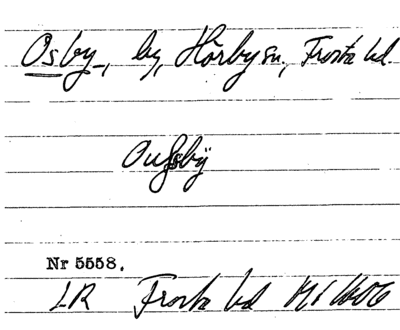 Osby, by, Hörby sn., Frosta hd.
Oufssbÿ
Nr 5558.
LR Frosta hd